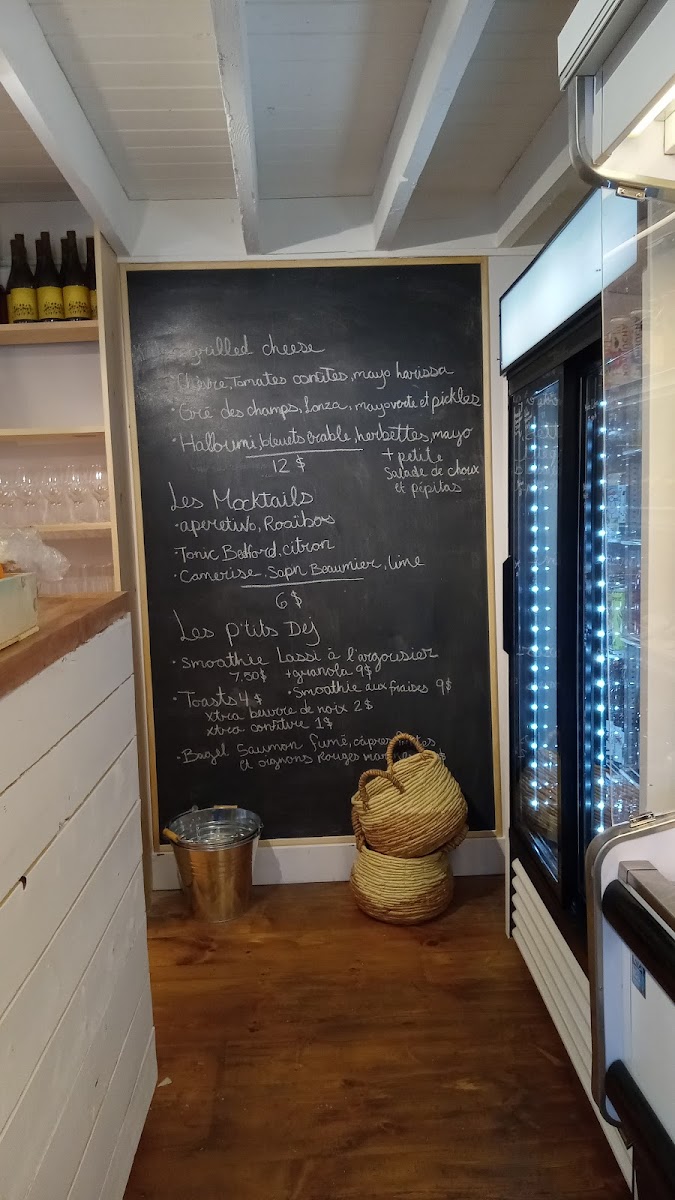 grilled cheese
· Chèvre, Tomates confites, mayo harissa
· Gré des champs, Lonza, mayo verte et pickles
· Halloumi, bleuets érable, herbettes, mayo
12 $
+ petite
Salade de choux
et pépitas
Les Mocktails
· aperetivo, Rooïbos
· Tonic Bedford, citron
· Camerise, Sapin Beaumier, lime
6 $
Les p'tits Dej
· Smoothie Lassi à l'argousier
7.50 $ + granola 9 $
· Toasts 4 $ · Smoothie aux fraises 9 $
xtra beurre de noix 2 $
xtra confiture 1 $
· Bagel Saumon fumé, câpres
et oignons rouges